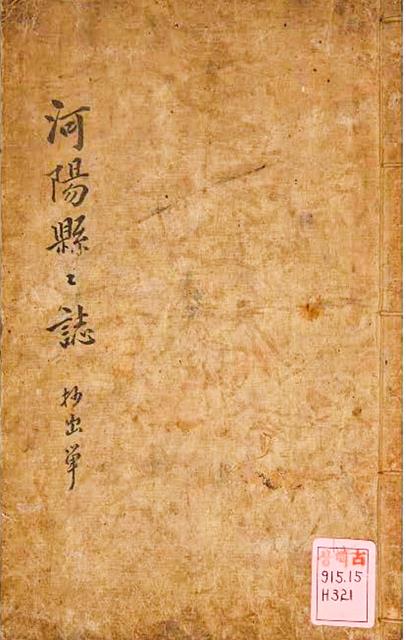 河陽縣〻誌 抄出草
915.15
H321